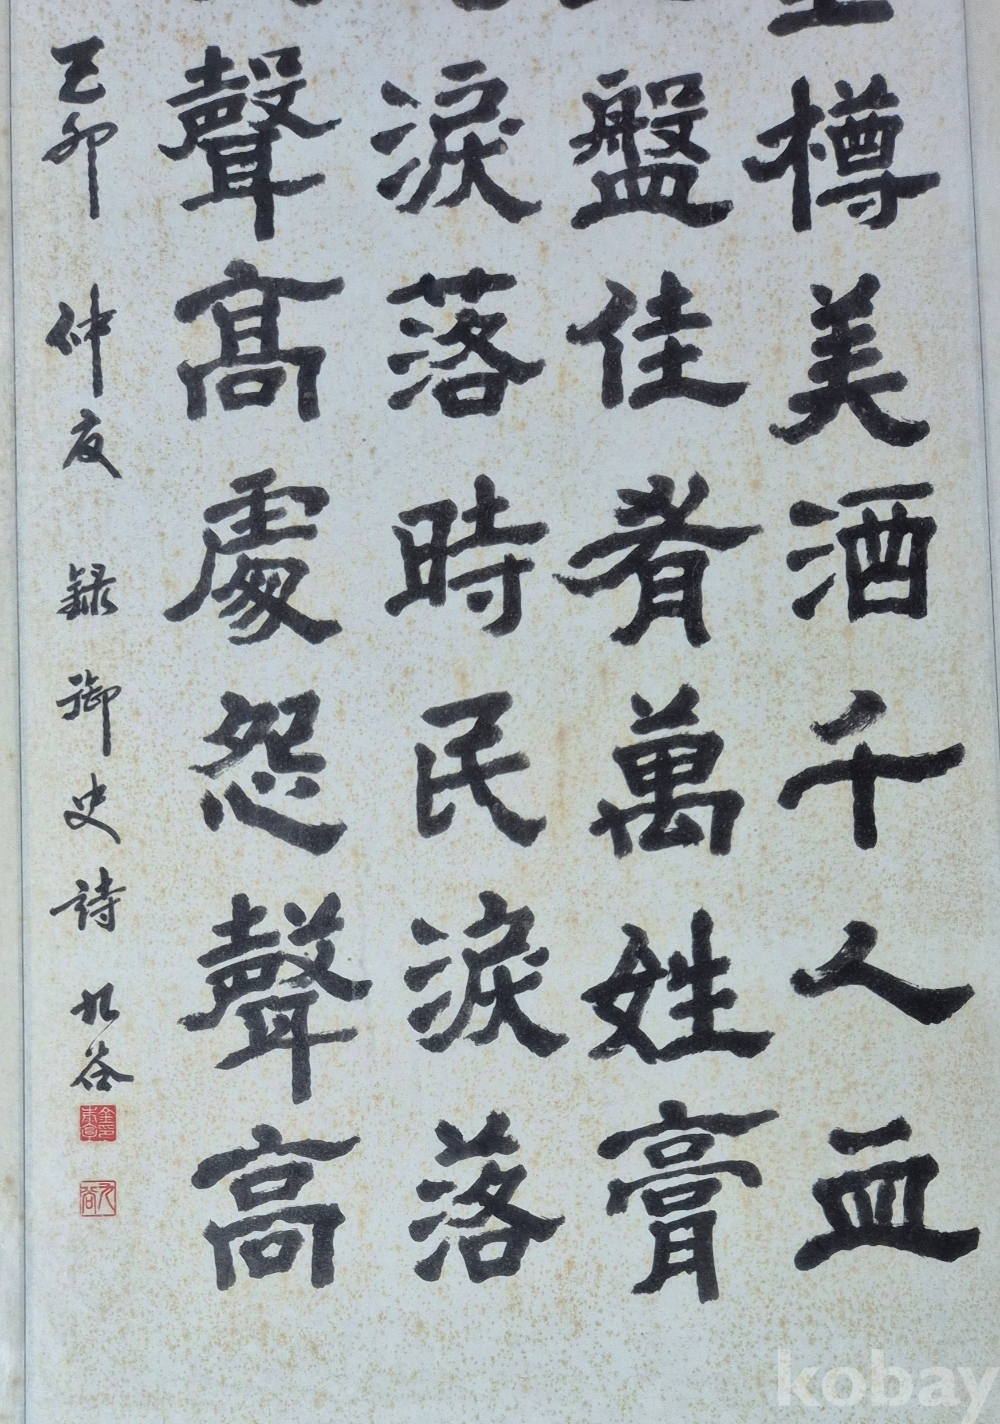 樽美酒千人血
盤佳肴萬姓膏
淚落時民淚落
聲髙處怨聲高
己卯 仲夏 錄御史詩 九谷
九谷
kobay